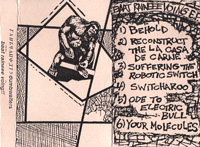 1) BEHOLD
2) RECONSTRUCT
THE LA CASA
DE CARNE
3) SUFFERING THE
ROBOTIC SWITCH
4) SWITCHAROO
5) ODE TO
ELECTRIC
BULL
6) YOUR MOLECULES